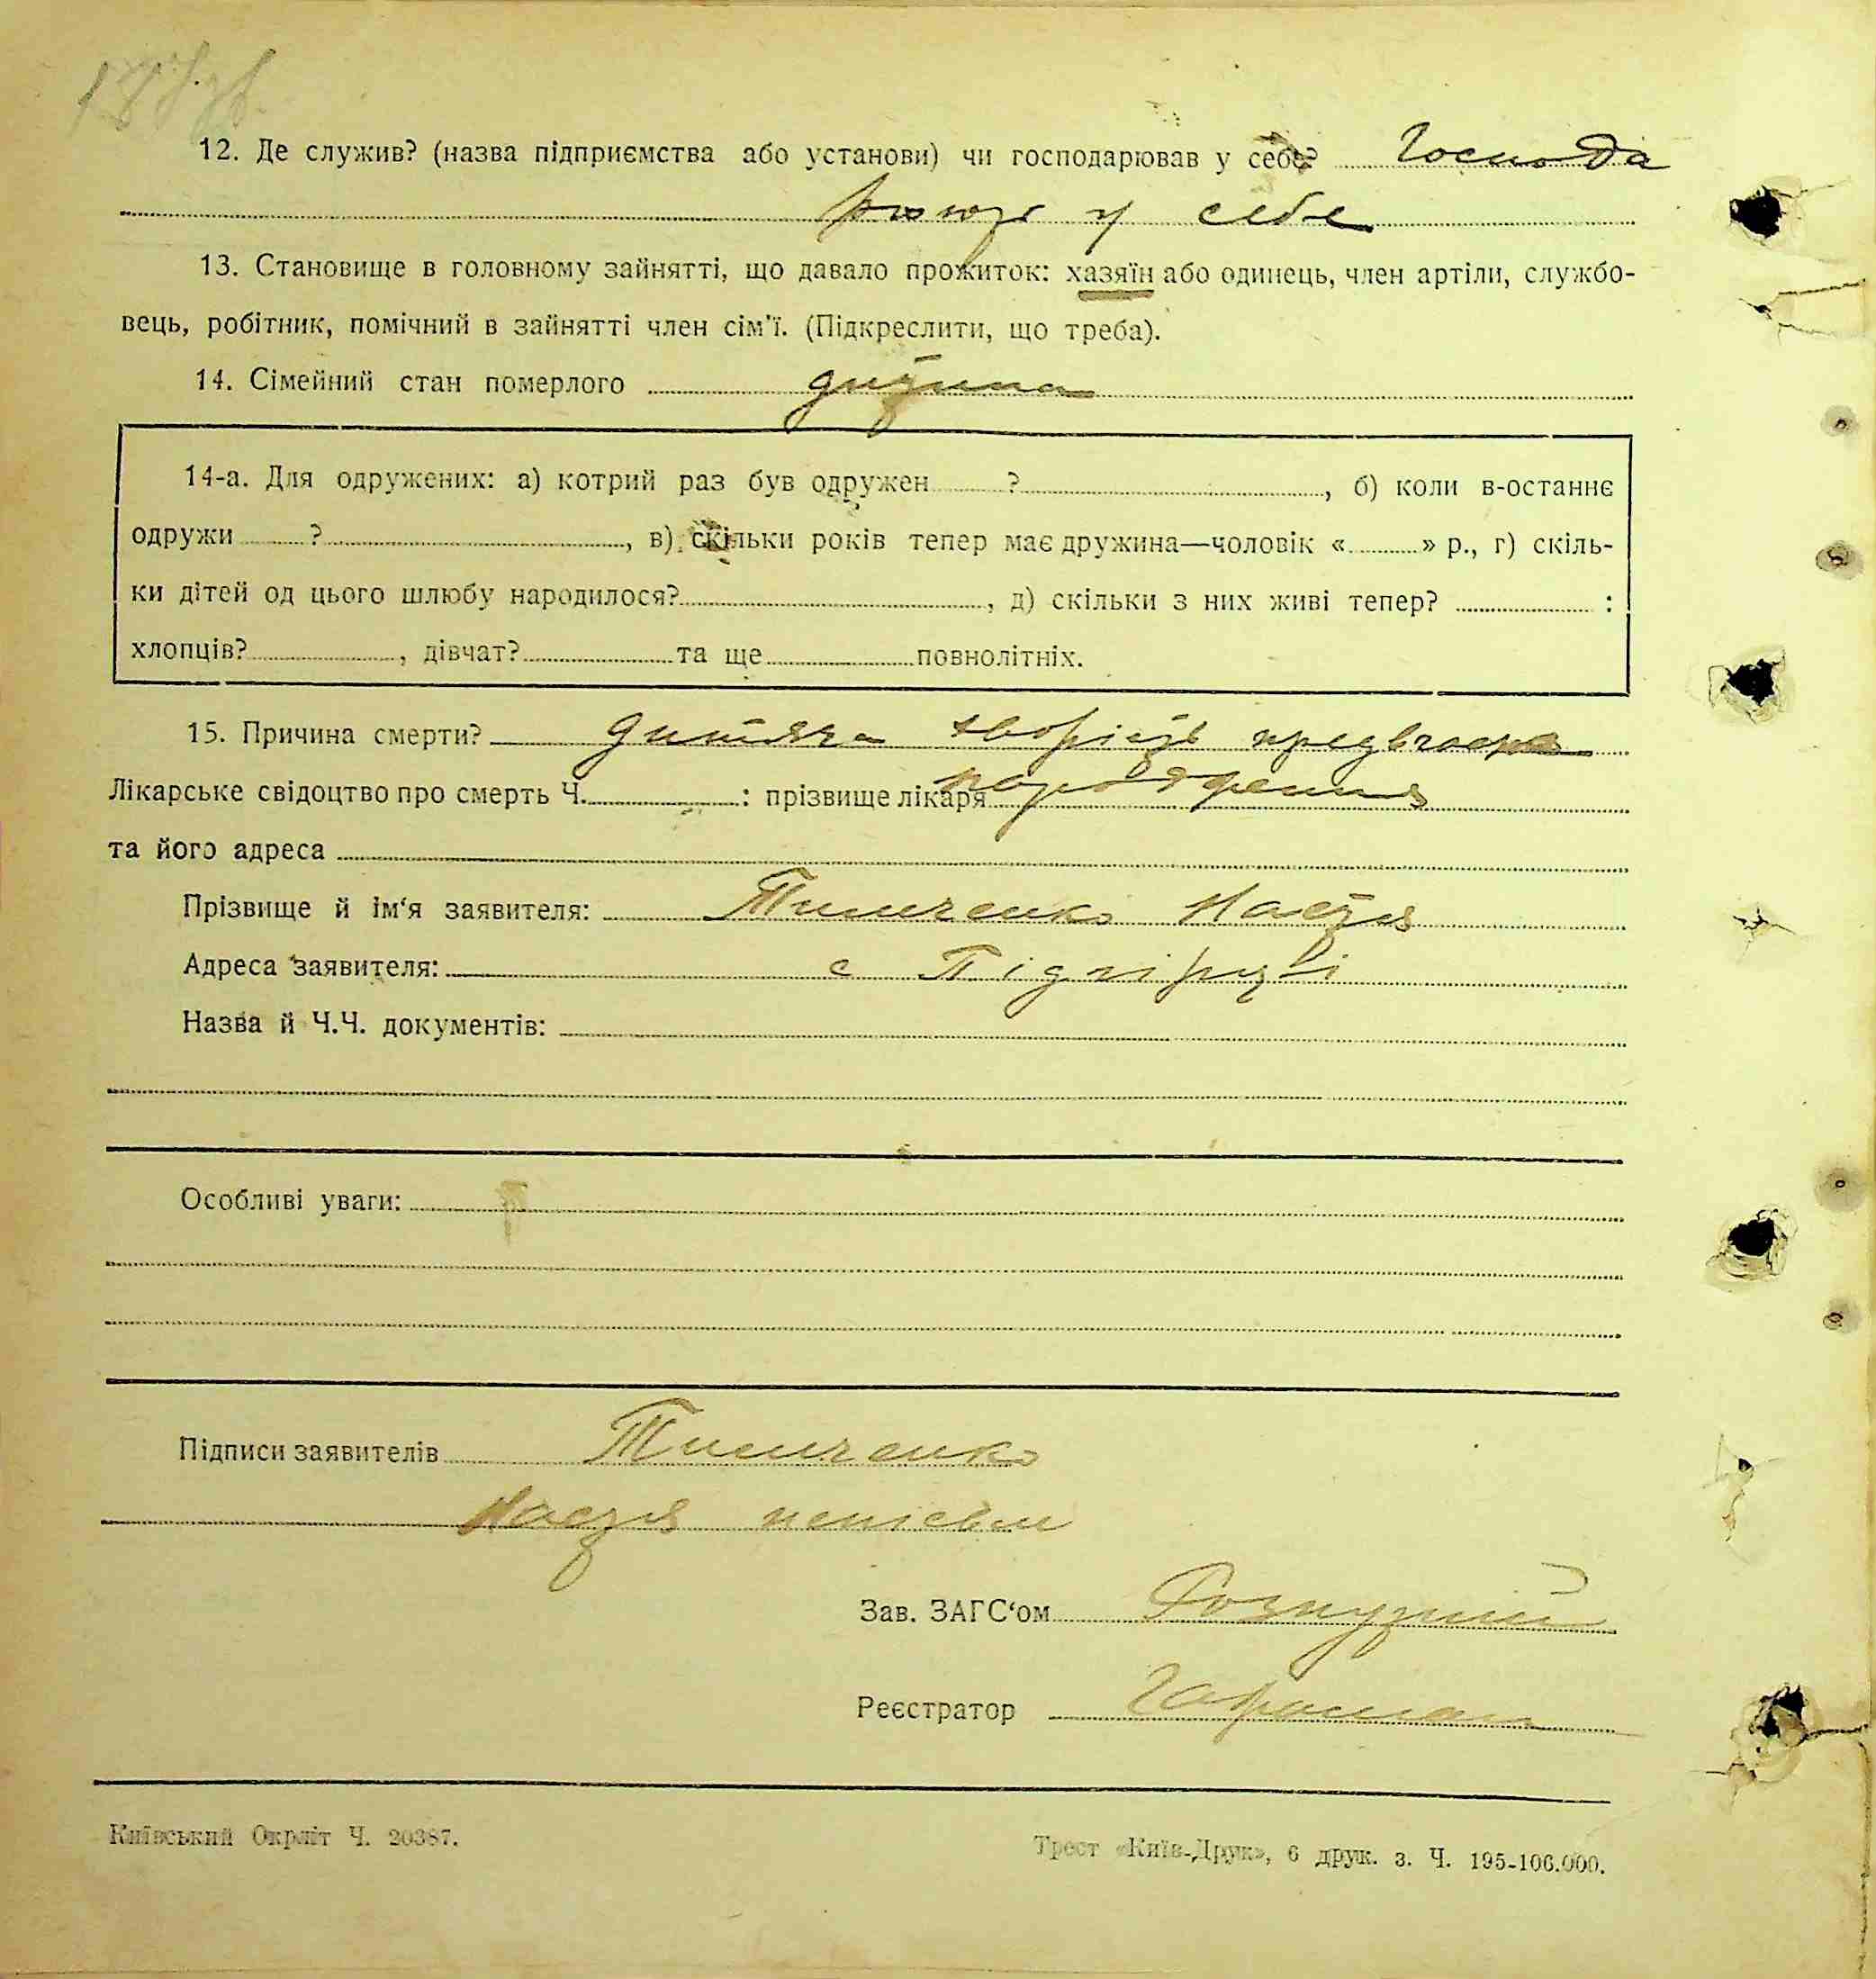 12. Де служив? (назва підприємства або установи) чи господарював у себе? Господа
рює у себе
13. Становище в головному зайнятті, що давало прожиток: хазяїн або одинець, член артіли, службо-
вець, робітник, помічний в зайнятті член сім'ї. (Підкреслити, що треба).
14. Сімейний стан померлого дитина
14-а. Для одружених: а) котрий раз був одружен ?, б) коли в-останнє
одружи ?, в) скільки років тепер має дружина—чоловік « » р., г) скіль-
ки дітей од цього шлюбу народилося?, д) скільки з них живі тепер? :
хлопців?, дівчат? та ще повнолітніх.
15. Причина смерти? дитяча
Лікарське свідоцтво про смерть Ч. : прізвище лікаря
та його адреса
Прізвище й ім‘я заявителя: Тимченко Настя
Адреса заявителя: с Підгірці
Назва й Ч.Ч. документів:
Особливі уваги:
Підписи заявителів Тимченко
Настя неписьм
Зав. ЗАГС‘ом
Реєстратор
Київський Окрліт Ч. 20387.
Трест «Київ-Друк», 6 друк. з. Ч. 195-100.000.